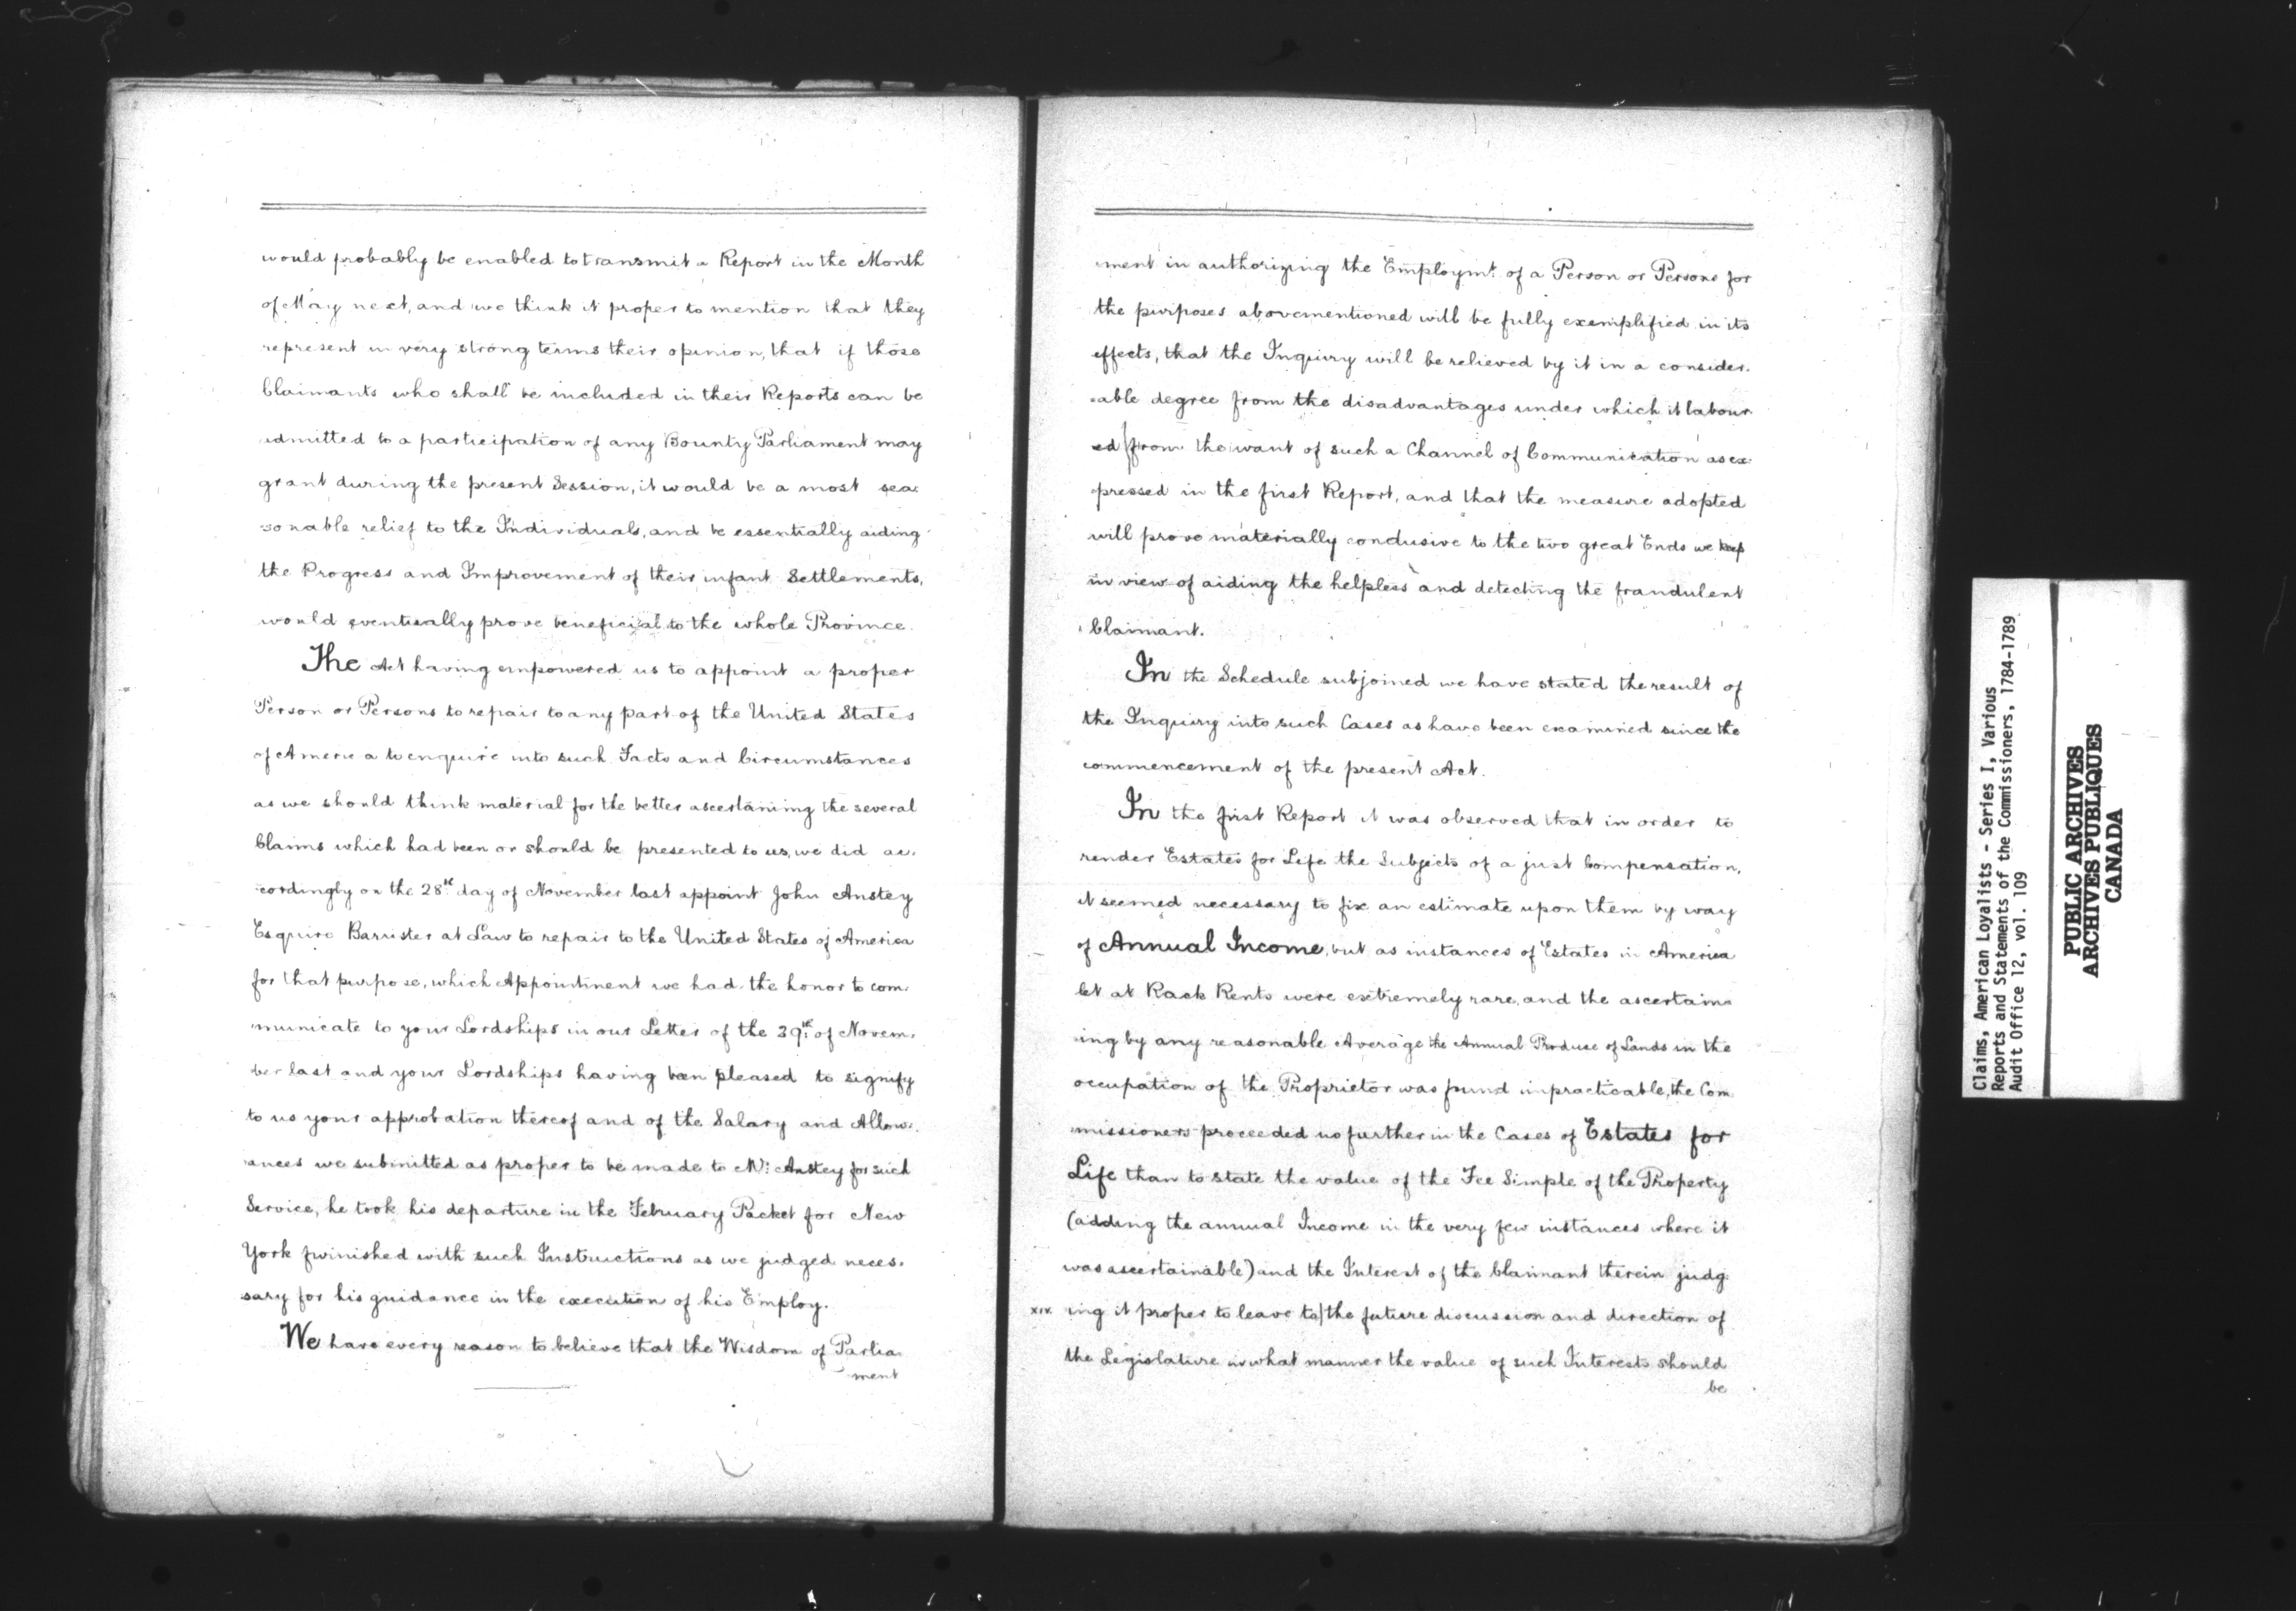 would probably be enabled to transmit a Report in the Month
of May next, and we think it proper to mention that they
represent in very strong terms their opinion, that if those
Claimants who shall be included in their Reports can be
admitted to a participation of any Bounty Parliament may
grant during the present Session, it would be a most sea:
sonable relief to the Individuals, and be essentially aiding
the Progress and Improvement of their infant Settlements,
would eventually prove beneficial to the whole Province.
The Act having empowered us to appoint a proper
Person or Persons to repair to any part of the United States
of America to enquire into such Facts and Circumstances
as we should think material for the better ascertaining the several
Claims which had been or should be presented to us, we did ac.
cordingly on the 28th day of November last appoint John Anstey
Esquire Barrister at Law to repair to the United States of America
for that purpose, which Appointment we had the honor to com.
municate to your Lordships in our Letter of the 39th of Novem.
ber last and your Lordships having been pleased to signify
to us your approbation thereof and of the Salary and Allow:
ances we submitted as proper to be made to Mr: Anstey for such
Service, he took his departure in the February Packet for New
York furnished with such Instructions as we judged neces.
sary for his guidance in the execution of his Employ.
We have every reason to believe that the Wisdom of Parlia.
ment
ment in authorizing the Employmt. of a Person or Persons for
the purposes abovementioned will be fully exemplified in its
effects, that the Inquiry will be relieved by it in a consider.
able degree from the disadvantages under which it labour
ed from the want of such a Channel of Communication as ex.
pressed in the first Report, and that the measure adopted
will prove materially conducive to the two great Ends we keep
in view of aiding the helpless and detecting the fraudulent
Claimant.
In the Schedule subjoined we have stated the result of
the Inquiry into such Cases as have been examined since the
commencement of the present Act.
In the first Report it was observed that in order to
render Estates for Life the Subjects of a just Compensation,
it seemed necessary to fix an estimate upon them by way
of Annual Income, but as instances of Estates in America
let at Rack Rents were extremely rare, and the ascertain=
ing by any reasonable Average the Annual Produce of Lands in the
occupation of the Proprietor was found impracticable, the Com
missioners proceeded no further in the Cases of Estates for
Life than to state the value of the Fee Simple of the Property
(adding the annual Income in the very few instances where it
was ascertainable) and the Interest of the Claimant therein judg.
xiv. ing it proper to leave to the future discussion and direction of
the Legislature in what manner the value of such Interests should
be
Claims, American Loyalists - Series I, Various
Reports and Statements of the Commissioners, 1784-1789
Audit Office 12, vol. 109
PUBLIC ARCHIVES
ARCHIVES PUBLIQUES
CANADA